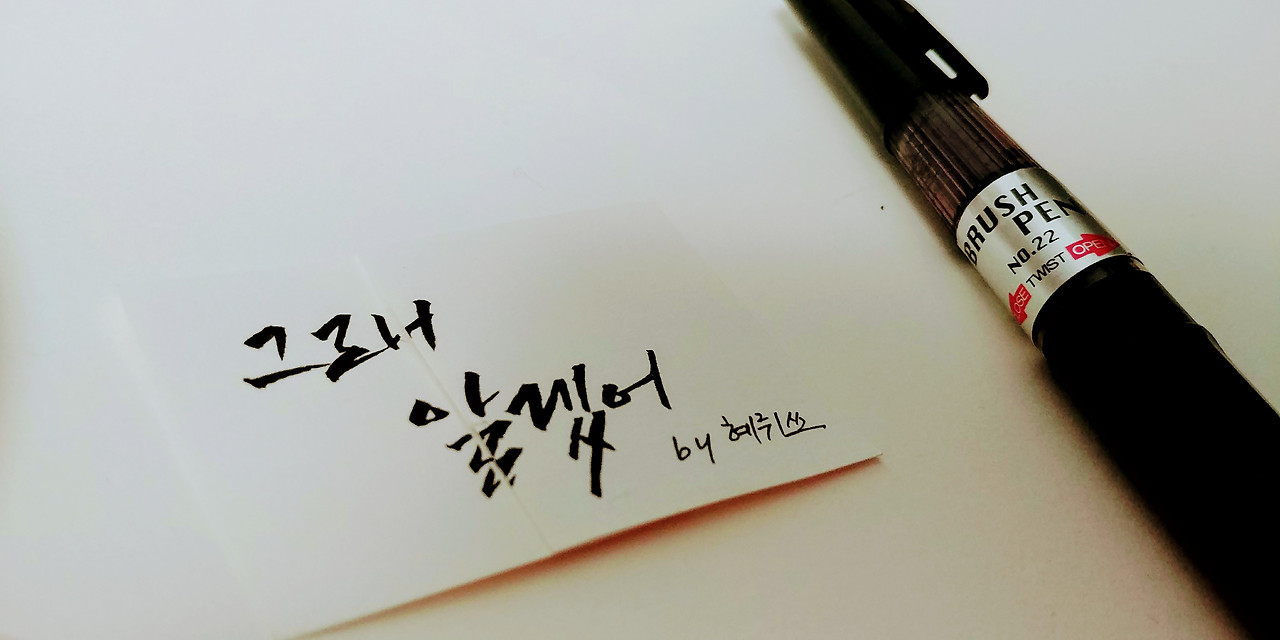 그래
알겠어
by 혜뤼쓰
BRUSH
PEN
NO.22
TWIST OPEN